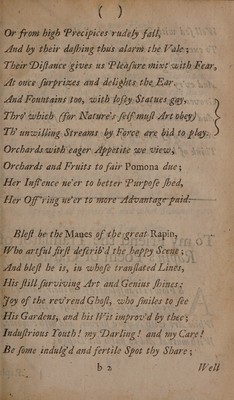 ( )
Or from high Precipices rudely fall,
And by their dashing thus alarm the Vale;
Their Distance gives us Pleasure mixt with Fear,
At once surprizes and delights the Ear.
And Fountains too, with lofty Statues gay,
Thro' which (for Nature's self must Art obey)
Th' unwilling Streams by Force are bid to play.
Orchards with eager Appetite we view,
Orchards and Fruits to fair Pomona due;
Her Infl'ence ne'er to better Purpose shed,
Her Off'ring ne'er to more Advantage paid.
Blest be the Manes of the great Rapin,
Who artful first describ'd the happy Scene;
And blest be he, in whose translated Lines,
His still surviving Art and Genius shines;
Joy of the rev'rend Ghost, who smiles to see
His Gardens, and his Wit improv'd by thee;
Industrious Youth! my Darling! and my Care!
Be some indulg'd and fertile Spot thy Share;
b 2 Well